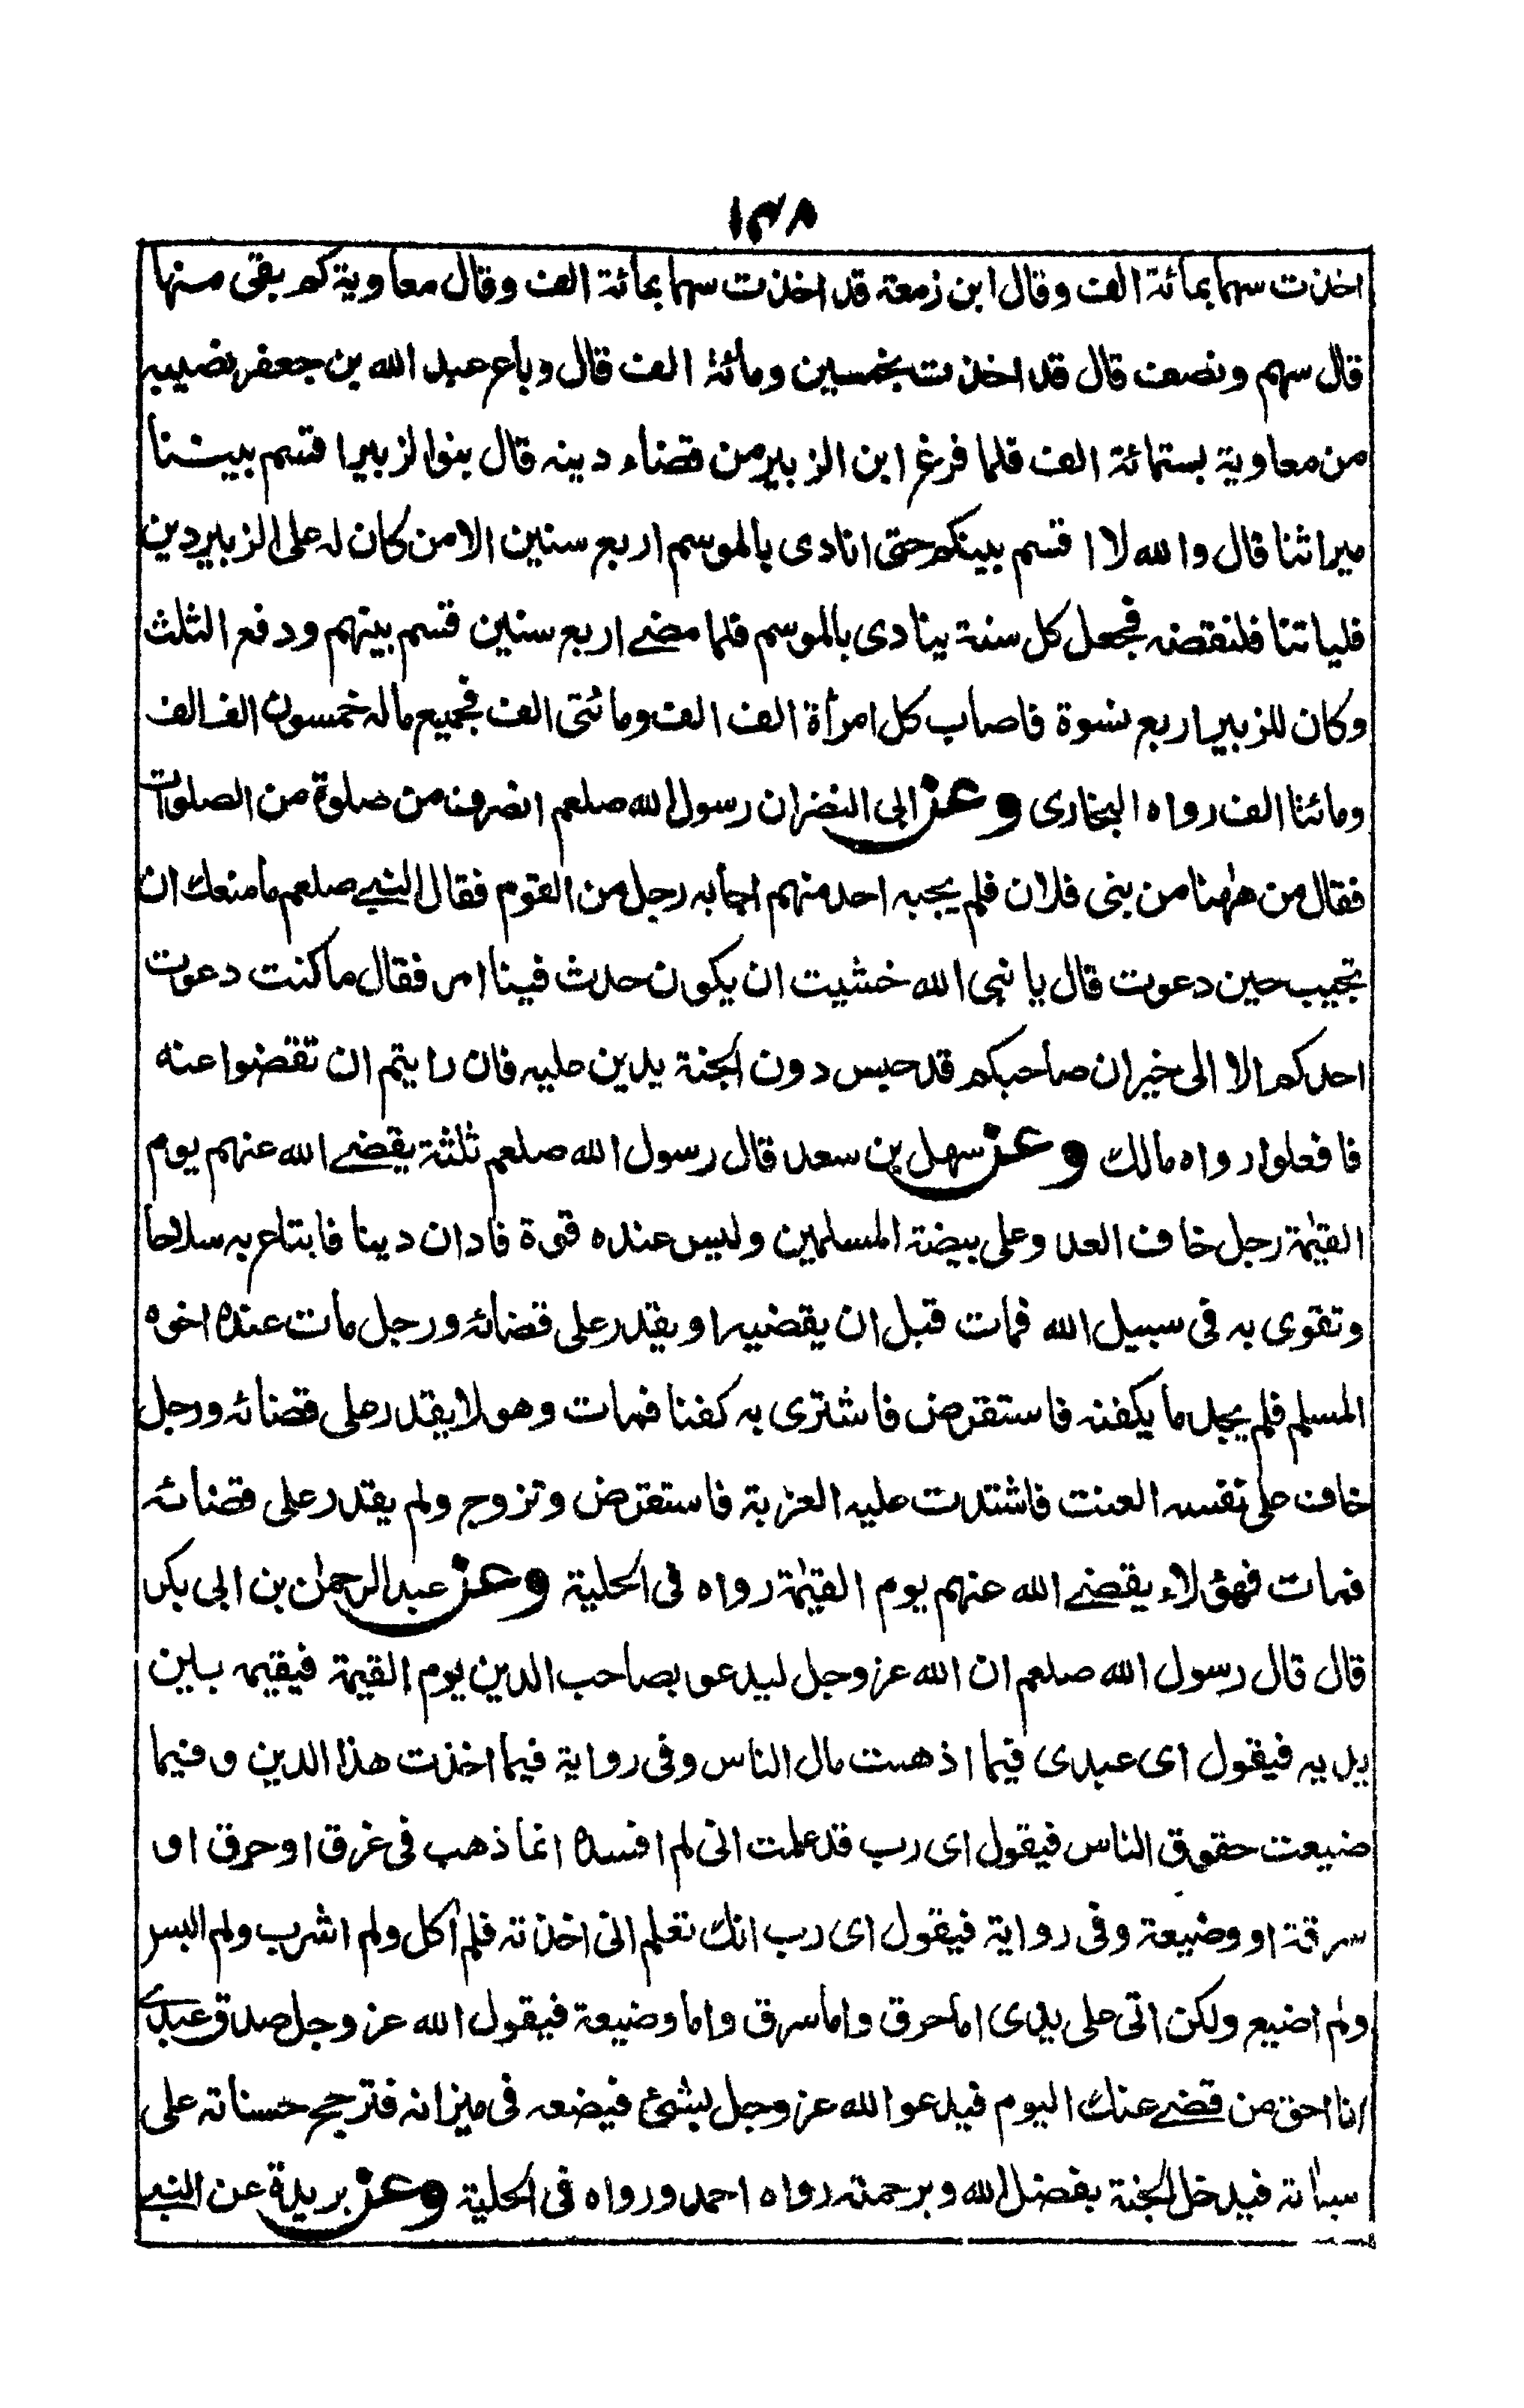 ١٣٨
اخذت سهما بمائة الف وقال ابن زمعة قد اخذت سهما بمائة الف وقال معاوية كم بقى منها
قال سهم ونصف قال قد اخذت بخمسين ومائة الف قال وباع عبد الله بن جعفر نصيبه
من معاوية بستمائة الف فلما فرغ ابن الزبير من قضاء دينه قال بنو الزبير اقسم بيننا
ميراثنا قال والله لا اقسم بينكم حتى انادى بالموسم اربع سنين الا من كان له على الزبير دين
فلياتنا فلنقضه فجعل كل سنة ينادى بالموسم فلما مضے اربع سنين قسم بينهم ودفع الثلث
وكان للزبير اربع نسوة فاصاب كل امرأة الف الف ومائتى الف فجميع ماله خمسون الف الف
ومائتا الف رواه البخارى وعن ابى النضر ان رسول الله صلعم انصرف من صلوة من الصلوات
فقال من هٰهنا من بنى فلان فلم يجبه احد منهم اجابه رجل من القوم فقال النبے صلعم ما منعك ان
تجيب حين دعوت قال يا نبى الله خشيت ان يكون حدث فينا امر فقال ما كنت دعوت
احدكم الا الى خير ان صاحبكم قد حبس دون الجنة بدين عليه فان رايتم ان تقضوا عنه
فافعلوا رواه مالك وعن سهل بن سعد قال رسول الله صلعم ثلثة يقضے الله عنهم يوم
القيٰمة رجل خاف العدو على بيضة المسلمين وليس عنده قوة فادان دينا فابتاع به سلاحا
وتقوى به فى سبيل الله فمات قبل ان يقضيه او يقدر على قضائه ورجل مات عنده اخوه
المسلم فلم يجد ما يكفنه فاستقرض فاشترى به كفنا فمات وهو لا يقدر على قضائه ورجل
خاف على نفسه العنت فاشتدت عليه العزبة فاستقرض وتزوج ولم يقدر على قضائه
فمات فهؤلاء يقضے الله عنهم يوم القيٰمة رواه فى الحلية وعن عبد الرحمٰن بن ابى بكر
قال قال رسول الله صلعم ان الله عز وجل ليدعو بصاحب الدين يوم القيمة فيقيمه بين
يديه فيقول اى عبدى فيما اذهبت مال الناس وفى رواية فيما اخذت هذا الدين و فيما
ضيعت حقوق الناس فيقول اى رب قد علمت انى لم افسده انما ذهب فى غرق او حرق او
سرقة او وضيعة وفى رواية فيقول اى رب انك تعلم انى اخذته فلم أكل ولم اشرب ولم البس
ولم اضيع ولكن اتى على يدى اما حرق واما سرق واما وضيعة فيقول الله عز وجل صدق عبدے
انا احق من قضے عنك اليوم فيدعو الله عز وجل بشئ فيضعه فى ميزانه فترجح حسناته على
سيأته فيدخل الجنة بفضل الله وبرحمته رواه احمد ورواه فى الحلية وعن بريدة عن النبے